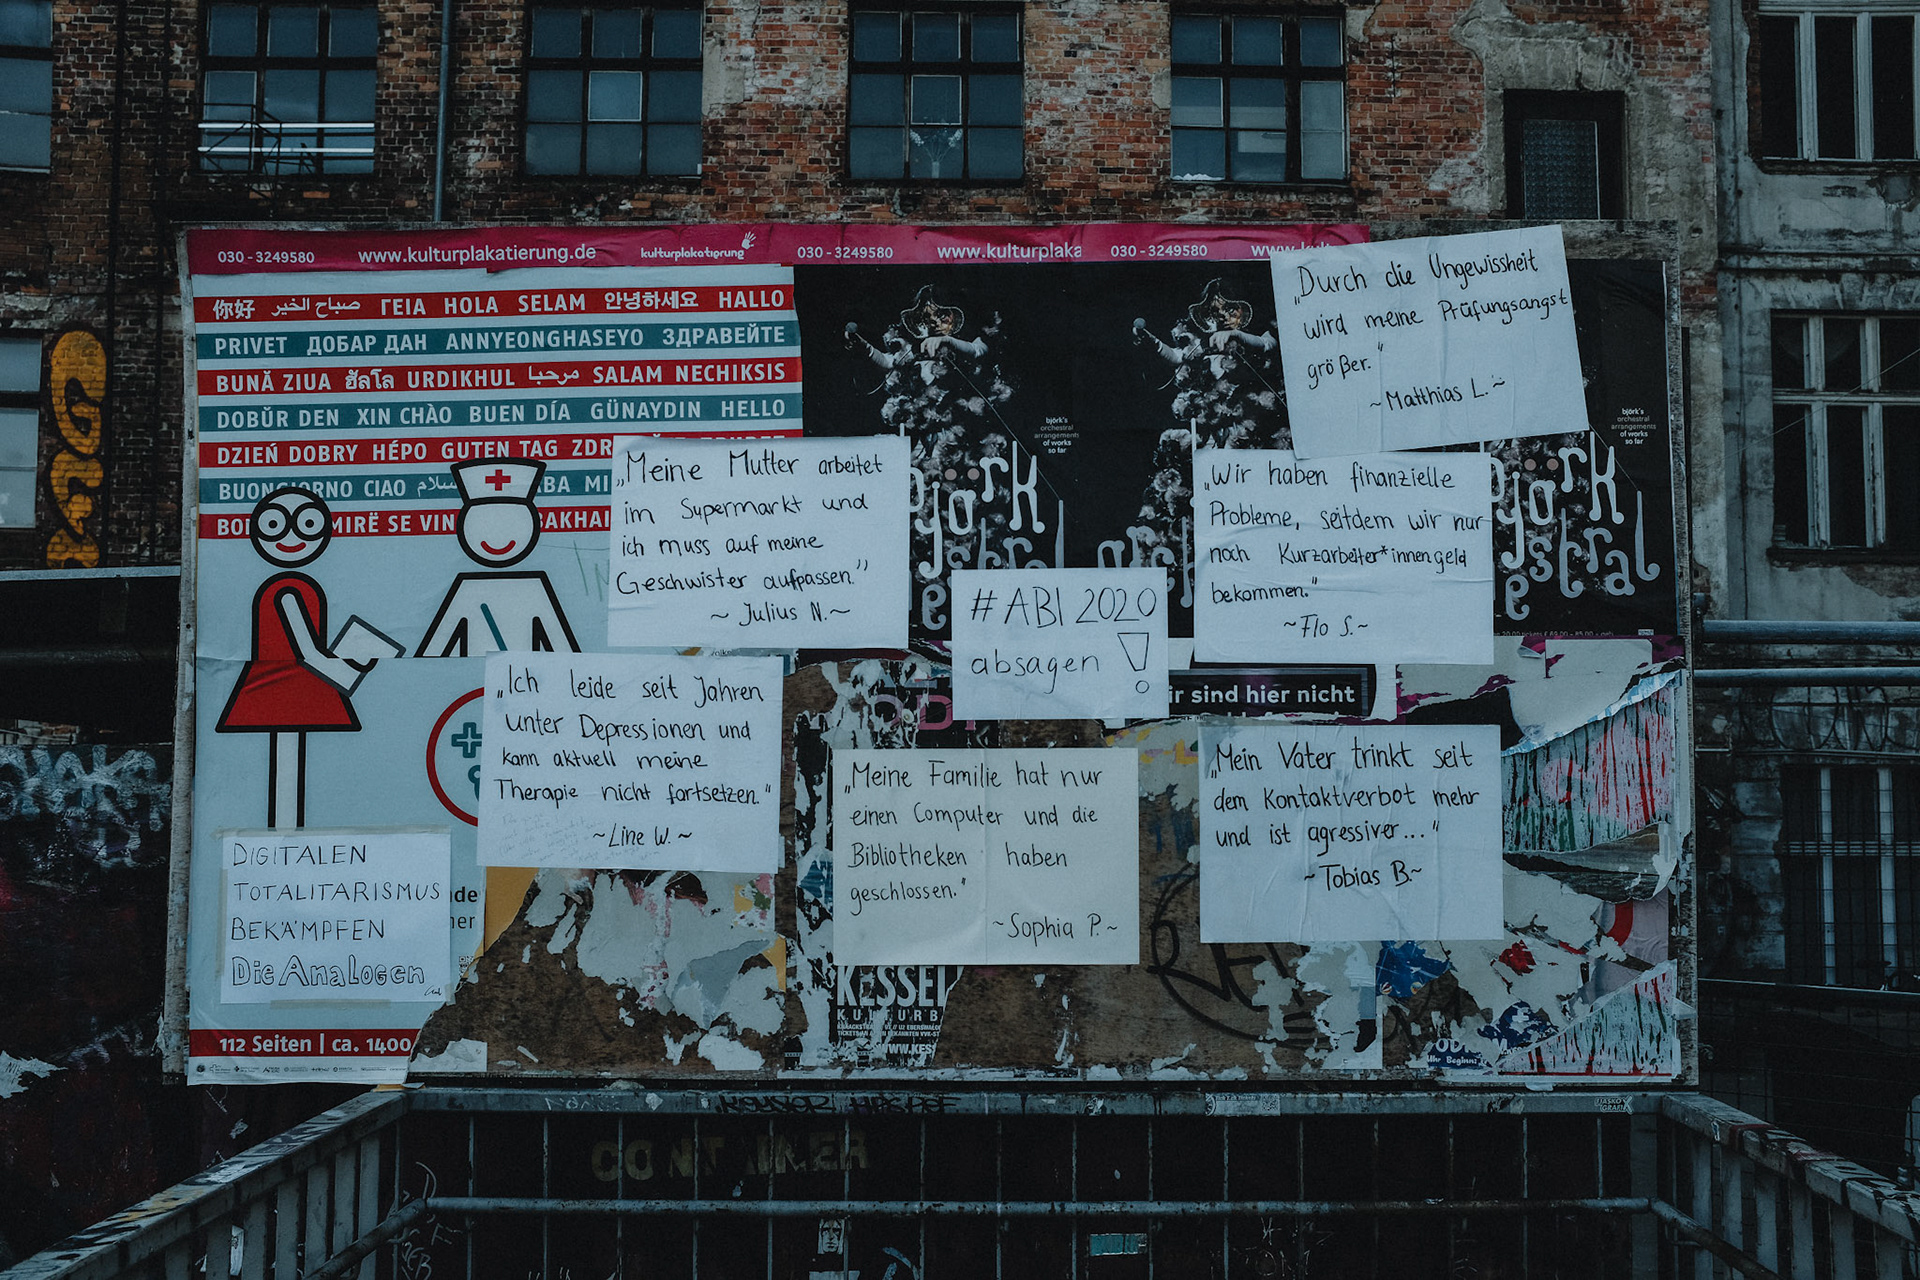 030 - 3249580 www.kulturplakatierung.de kulturplakatierung 030 - 3249580 www.kulturplaka 030 - 3249580
你好 صباح الخير ΓΕΙΑ HOLA SELAM 안녕하세요 HALLO
PRIVET ДОБАР ДАН ANNYEONGHASEYO ЗДРАВЕЙТЕ
BUNĂ ZIUA ฮัลโล URDIKHUL مرحبا SALAM NECHIKSIS
DOBŬR DEN XIN CHÀO BUEN DÍA GÜNAYDIN HELLO
DZIEŃ DOBRY HÉPO GUTEN TAG ZDR
BUONGIORNO CIAO سلام
MIRË SE VIN BAKHAI
112 Seiten | ca. 1400
DIGITALEN
TOTALITARISMUS
BEKÄMPFEN
Die AnaLogen
„Meine Mutter arbeitet
im Supermarkt und
ich muss auf meine
Geschwister aufpassen.''
~ Julius N. ~
„Ich leide seit Jahren
unter Depressionen und
kann aktuell meine
Therapie nicht fortsetzen."
~ Line W. ~
björk's
orchestral
arrangements
of works
so far
björk
#ABI 2020
absagen !
ir sind hier nicht
„Meine Familie hat nur
einen Computer und die
Bibliotheken haben
geschlossen."
~ Sophia P. ~
KESSEL
KULTURB
WWW.KES
„Durch die Ungewissheit
wird meine Prüfungsangst
größer."
~ Matthias L. ~
„Wir haben finanzielle
Probleme, seitdem wir nur
noch Kurzarbeiter*innengeld
bekommen."
~ Flo S. ~
björk's
orchestral
arrangements
of works
so far
björk
estral
„Mein Vater trinkt seit
dem Kontaktverbot mehr
und ist agressiver..."
~ Tobias B. ~
Uhr Beginn:
CONTAINER